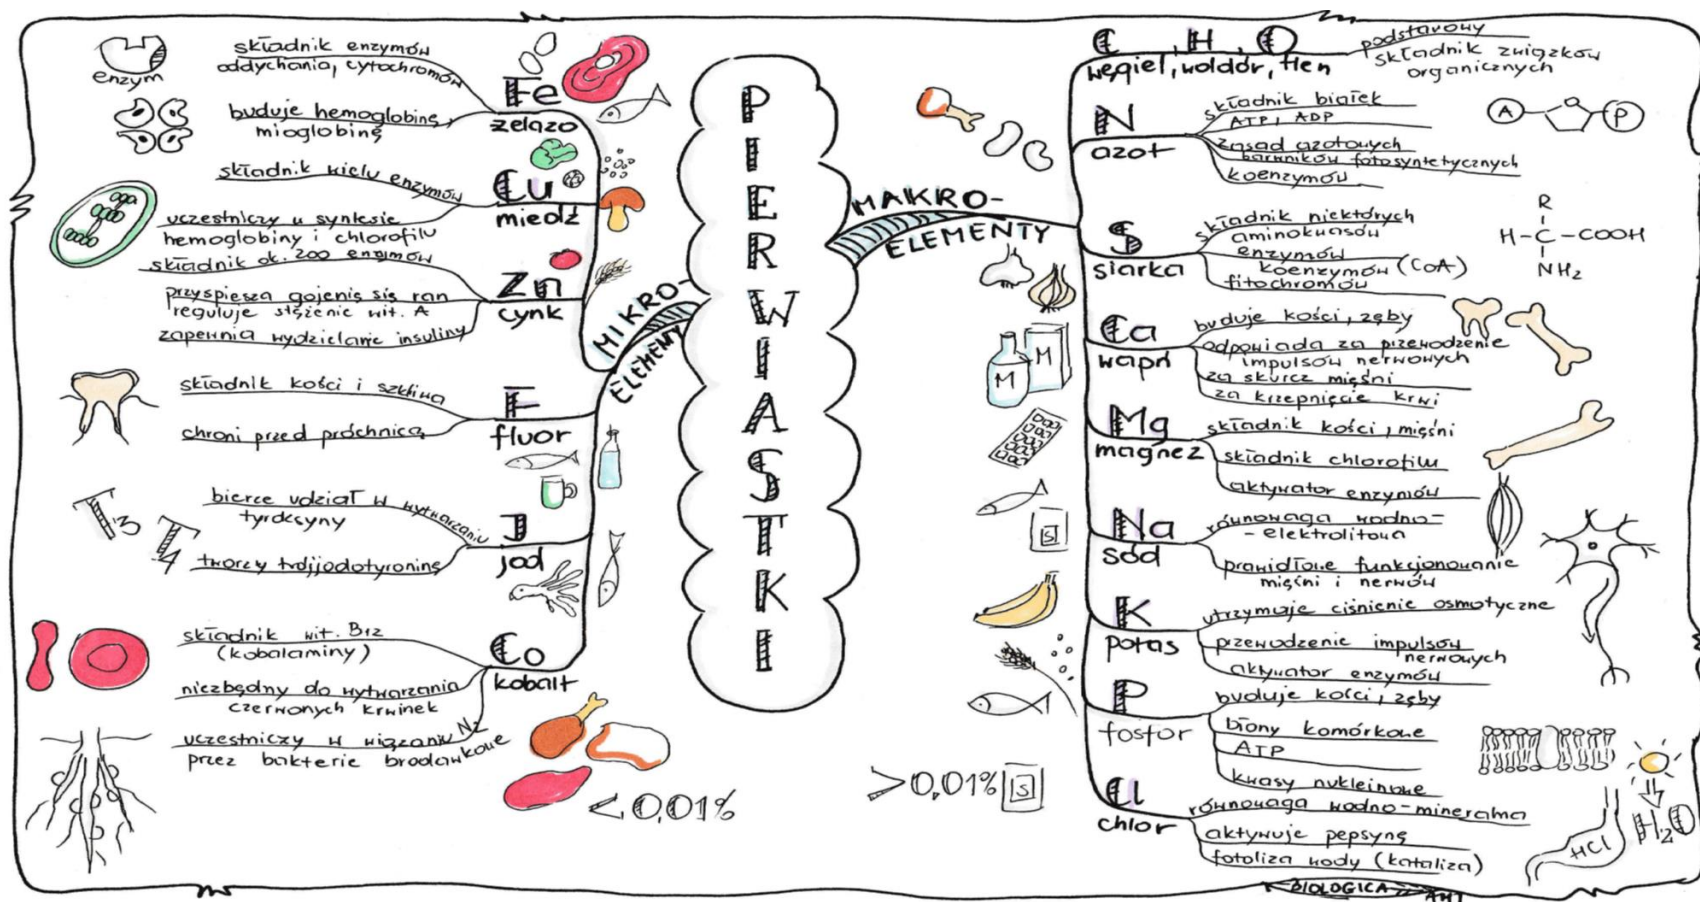 PIERWIASTKI
MIKRO-
ELEMENTY
<0,01%
Fe
żelazo
składnik enzymów
oddychania, cytochromów
buduje hemoglobinę,
mioglobinę
enzym
Cu
miedź
składnik wielu enzymów
uczestniczy w syntezie
hemoglobiny i chlorofilu
Zn
cynk
składnik ok. 200 enzymów
przyspiesza gojenie się ran
reguluje stężenie wit. A
zapewnia wydzielanie insuliny
F
fluor
składnik kości i szkliwa
chroni przed próchnicą
J
jod
bierze udział w wytwarzaniu
tyroksyny
tworzy trójjodotyroninę
T3
T4
Co
kobalt
składnik wit. B12
(kobalaminy)
niezbędny do wytwarzania
czerwonych krwinek
uczestniczy w wiązaniu N2
przez bakterie brodawkowe
MAKRO-
ELEMENTY
>0,01%
S
C, H, O
węgiel, wodór, tlen
podstawowy
składnik związków
organicznych
N
azot
składnik białek
ATP, ADP
zasad azotowych
barwników fotosyntetycznych
koenzymów
A
P
S
siarka
składnik niektórych
aminokwasów
enzymów
koenzymów (CoA)
fitochromów
R
H-C-COOH
NH2
Ca
wapń
buduje kości, zęby
odpowiada za przewodzenie
impulsów nerwowych
za skurcz mięśni
za krzepnięcie krwi
M
M
Mg
magnez
składnik kości, mięśni
składnik chlorofilu
aktywator enzymów
Na
sód
równowaga wodno-
-elektrolitowa
prawidłowe funkcjonowanie
mięśni i nerwów
S
K
potas
utrzymuje ciśnienie osmotyczne
przewodzenie impulsów
nerwowych
aktywator enzymów
P
fosfor
buduje kości, zęby
błony komórkowe
ATP
kwasy nukleinowe
Cl
chlor
równowaga wodno-mineralna
aktywuje pepsynę
fotoliza wody (kataliza)
HCl
H2O
BIOLOGICA
ART